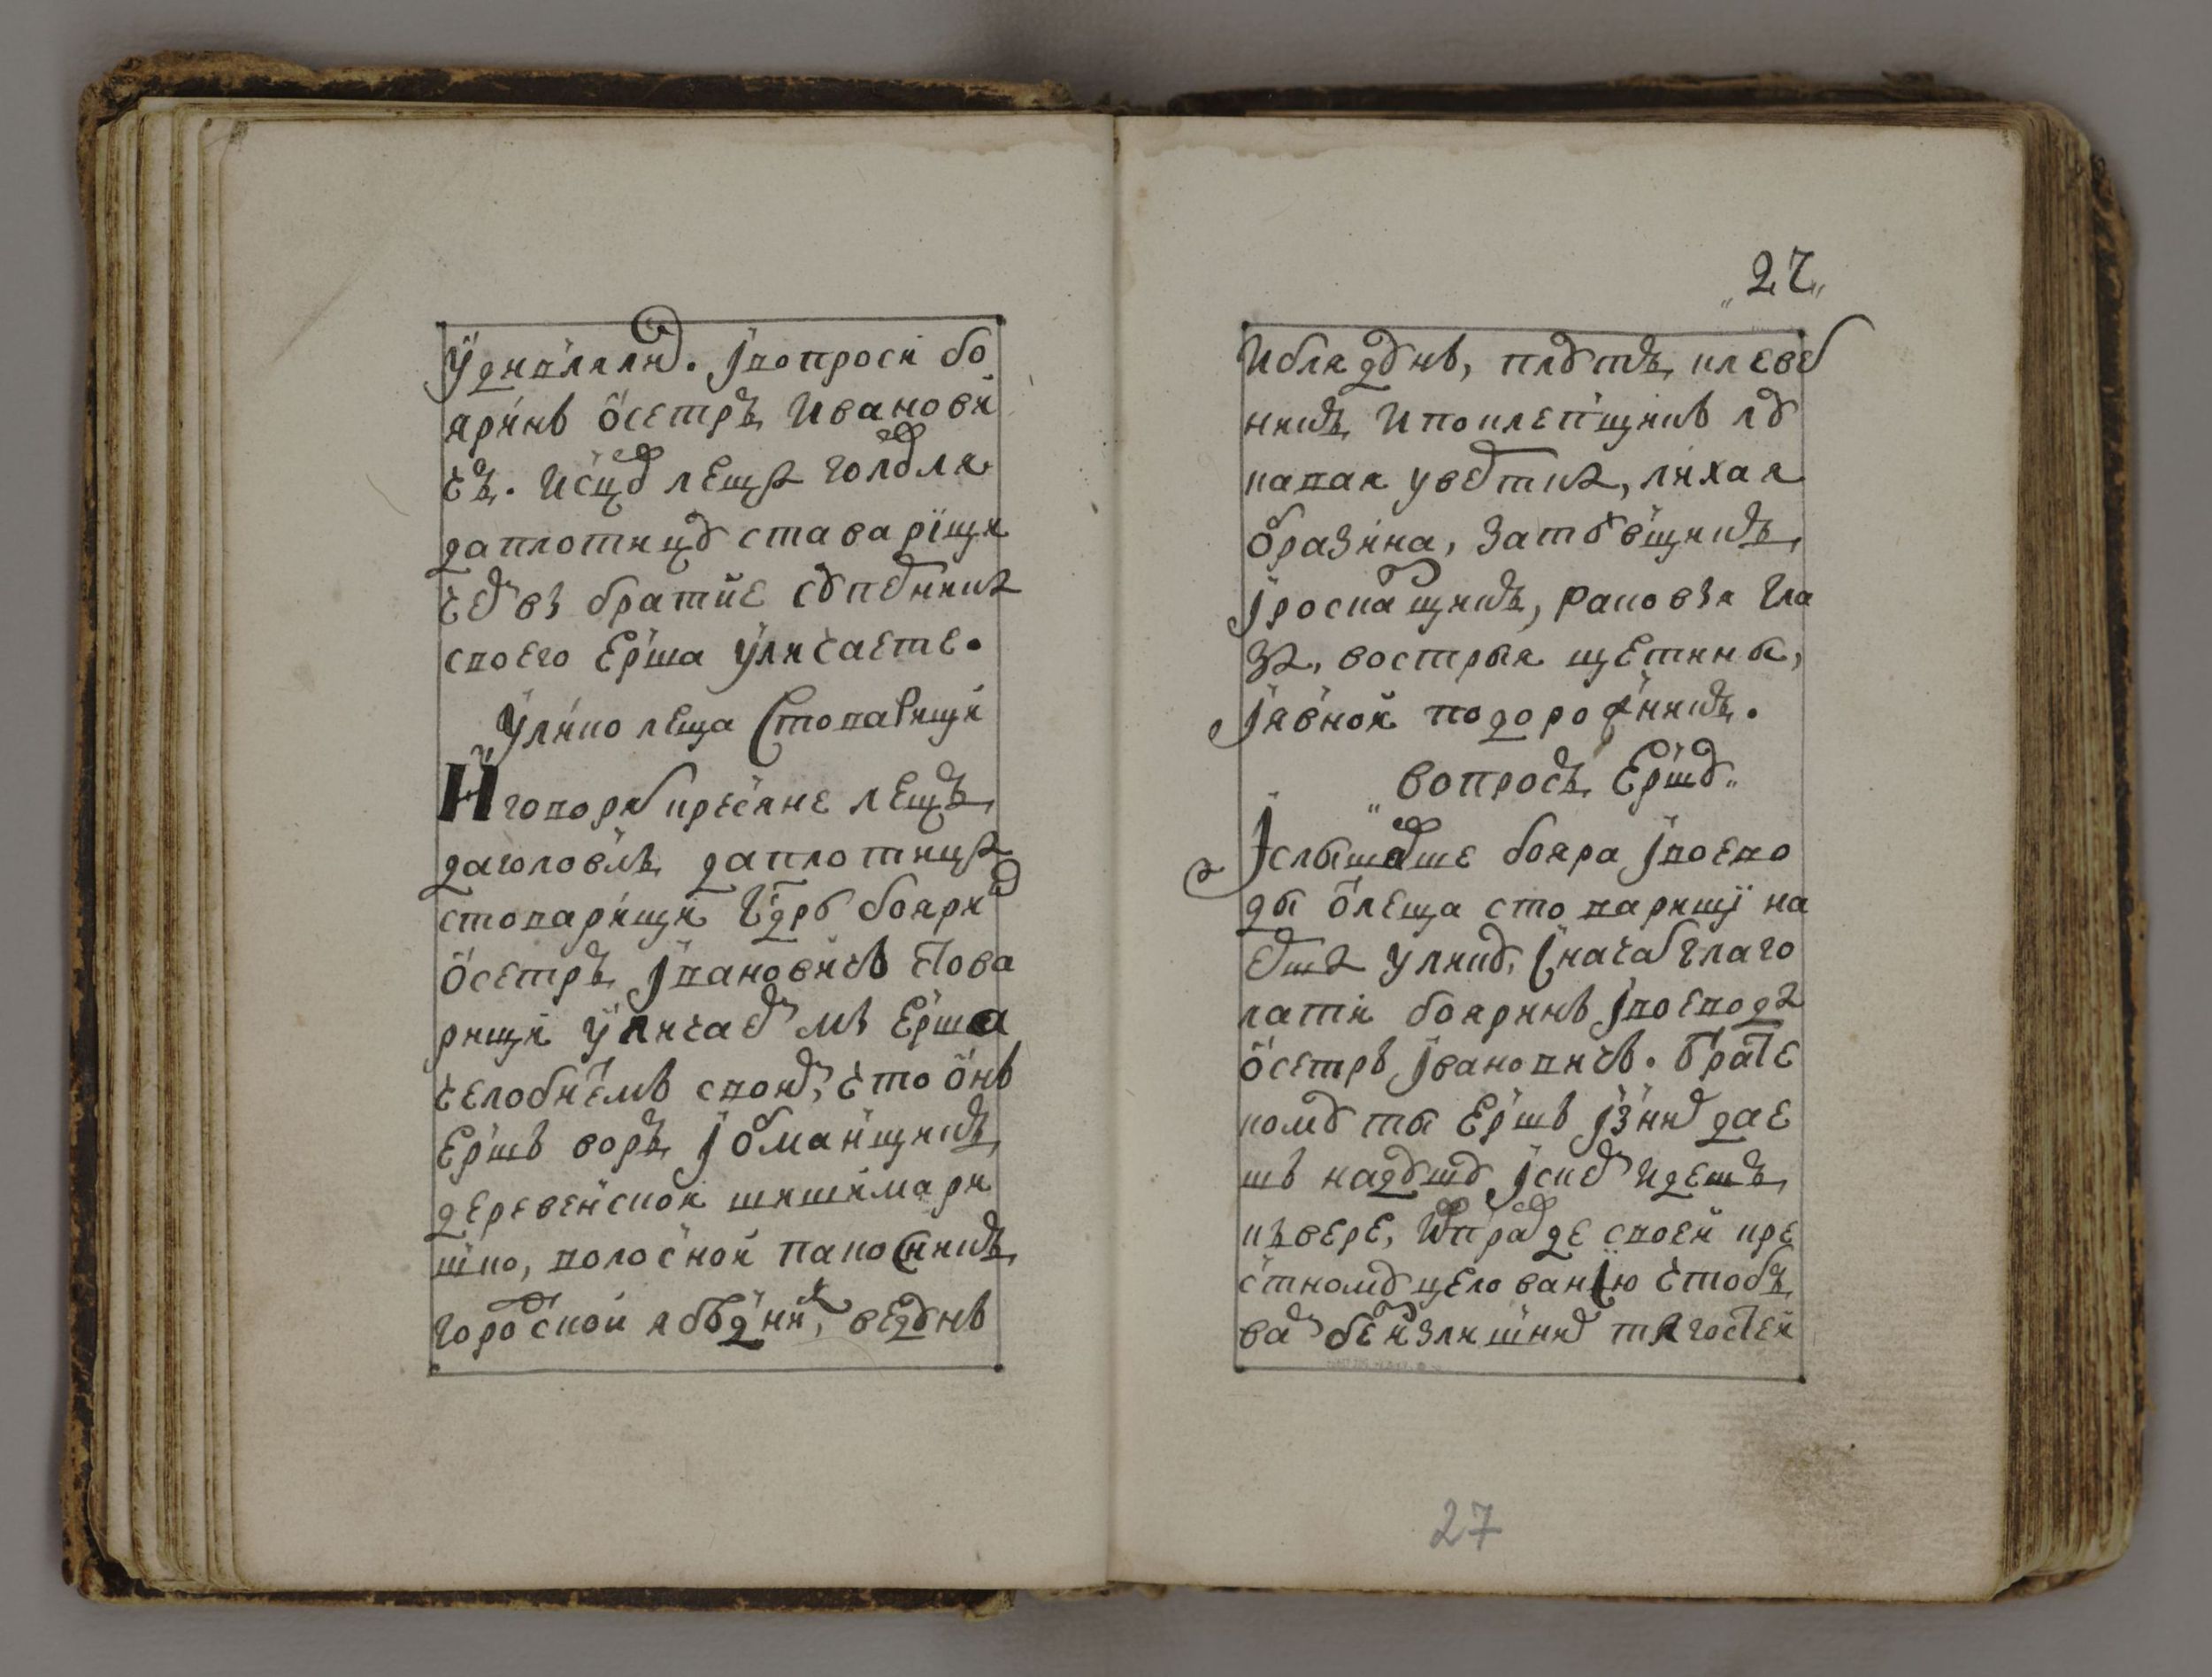 Удивлялис. Івопроси бо
яринъ осетръ Иванови
чъ. Исцу лещу головля
даплотицу ставарищи
чем въ братие супеники
своего Ерша уличаете.
Улико леща стоварищи
И говори крестяне лещъ
даголовль даплотица
стоварищи Гдрь бояри
осетръ Івановичь това
рищи уличаем мъ Ерша
челобитемъ своим, что онъ
Ершъ воръ Іобманщикъ
деревенской шишимари
шко, волосной пакосникъ
городской ябедни, ведунъ
Иблядунъ, плутъ клеве
никъ Ипоклепщикъ лу
кавая уветка, лихая
образина, затевщикъ
Іроскащикъ, раковзи гла
за, вострыя щетины,
Іявной подорожникъ.
вопросъ Ершу
Іслышавше бояра Івоево
ды олеща стоварищи на
Ерша улику, Іначал глаго
лати бояринъ Івоевода
осетръ Івановичъ. Брате
кому ты Ершъ Ізних дае
шъ надушу Іс ким идешъ
къвере, Опраде своей кре
стному целованию чтобъ
вам безизлишних тягостей
27
27